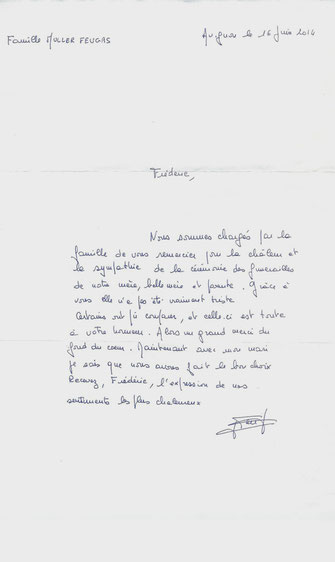 Famille MULLER FEUGAS
Avignon le 16 Juin 2014
Frédéric,
Nous sommes chargés par la
famille de vous remercier pour la chaleur et
la sympathie de la cérémonie des funérailles
de notre mère, belle mère et parente. Grâce à
vous elle n'a pas été vraiment triste
Certains ont pû confiance, et celle-ci est toute
à votre honneur. Alors un grand merci du
fond du coeur. Maintenant avec mon mari
je sais que nous avons fait le bon choix
Recevez, Frédéric, l'expression de nos
sentiments les plus chaleureux